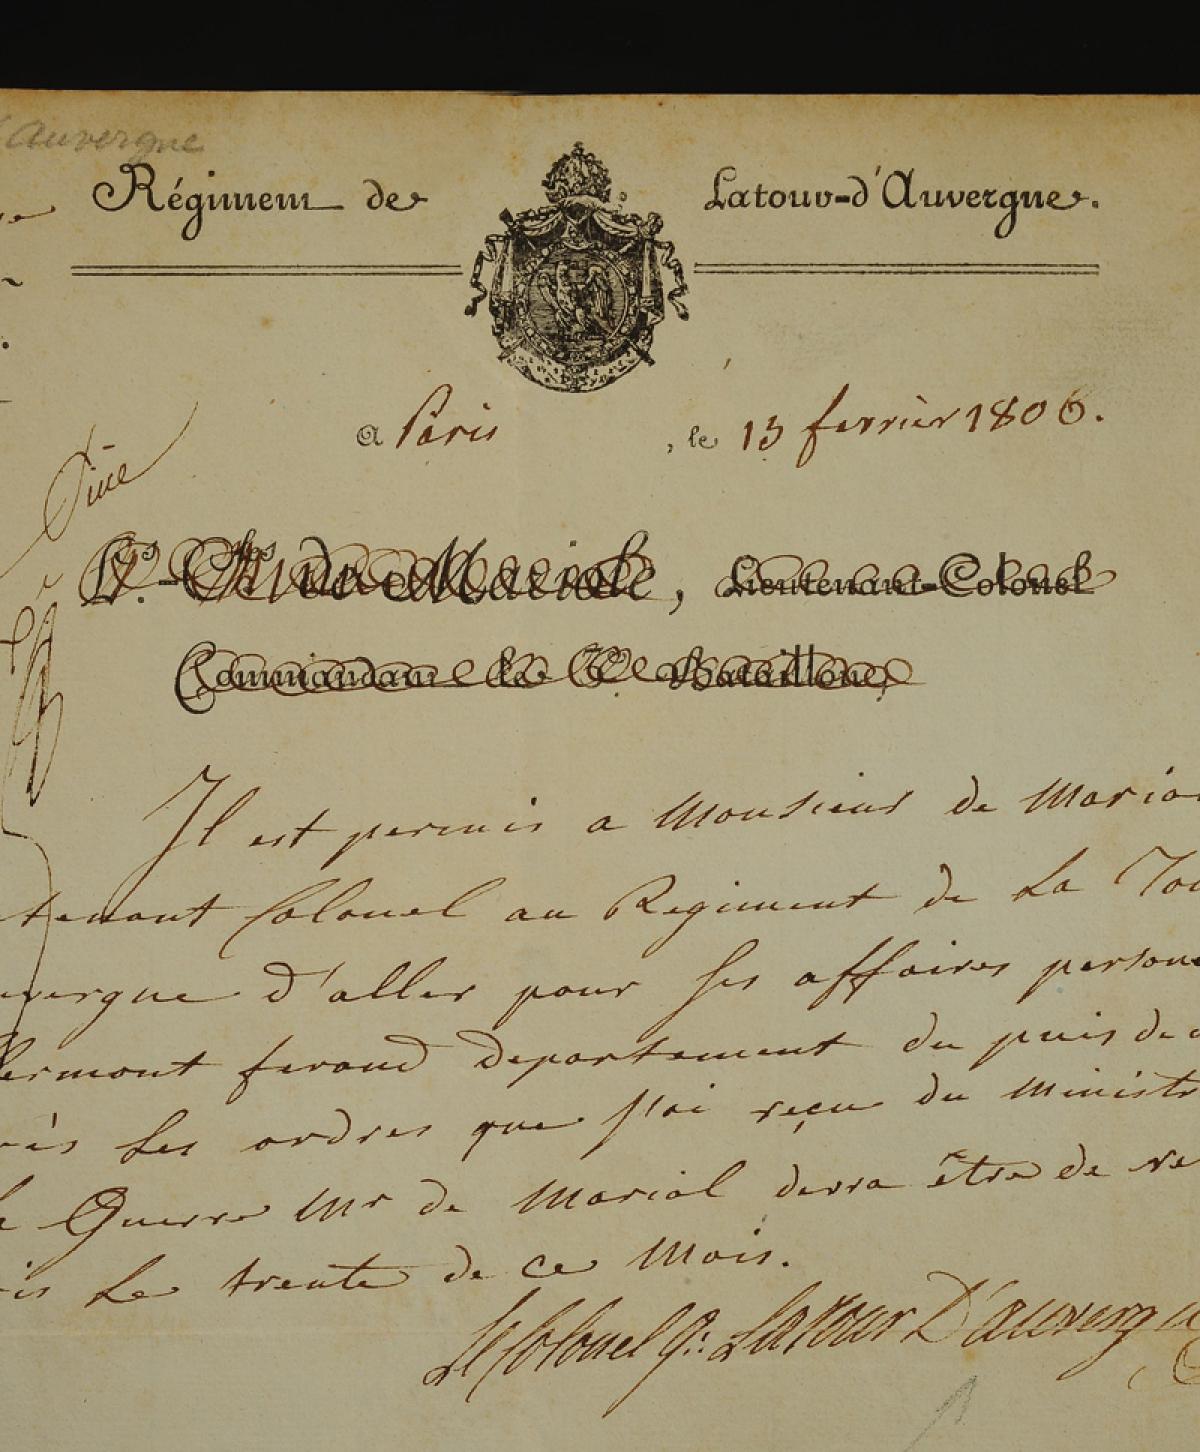 auvergne
Régiment de Latour-d'Auvergne.
a Paris, le 13 ferrièr 1806.
Lieutenant-Colonel
Commandant le 3e Bataillon,
Il est permis a Monsieur de Mario
tenant Colonel au Regiment de La Tou
uvergne d'aller pour ses affaires persone
lermont ferand departement du puis de d
rès les ordres que j'ai reçu du ministr
Guerre Mr de Mariol devra être de re
is Le trente de ce Mois.
Le Colonel P: Latour D'auvergn